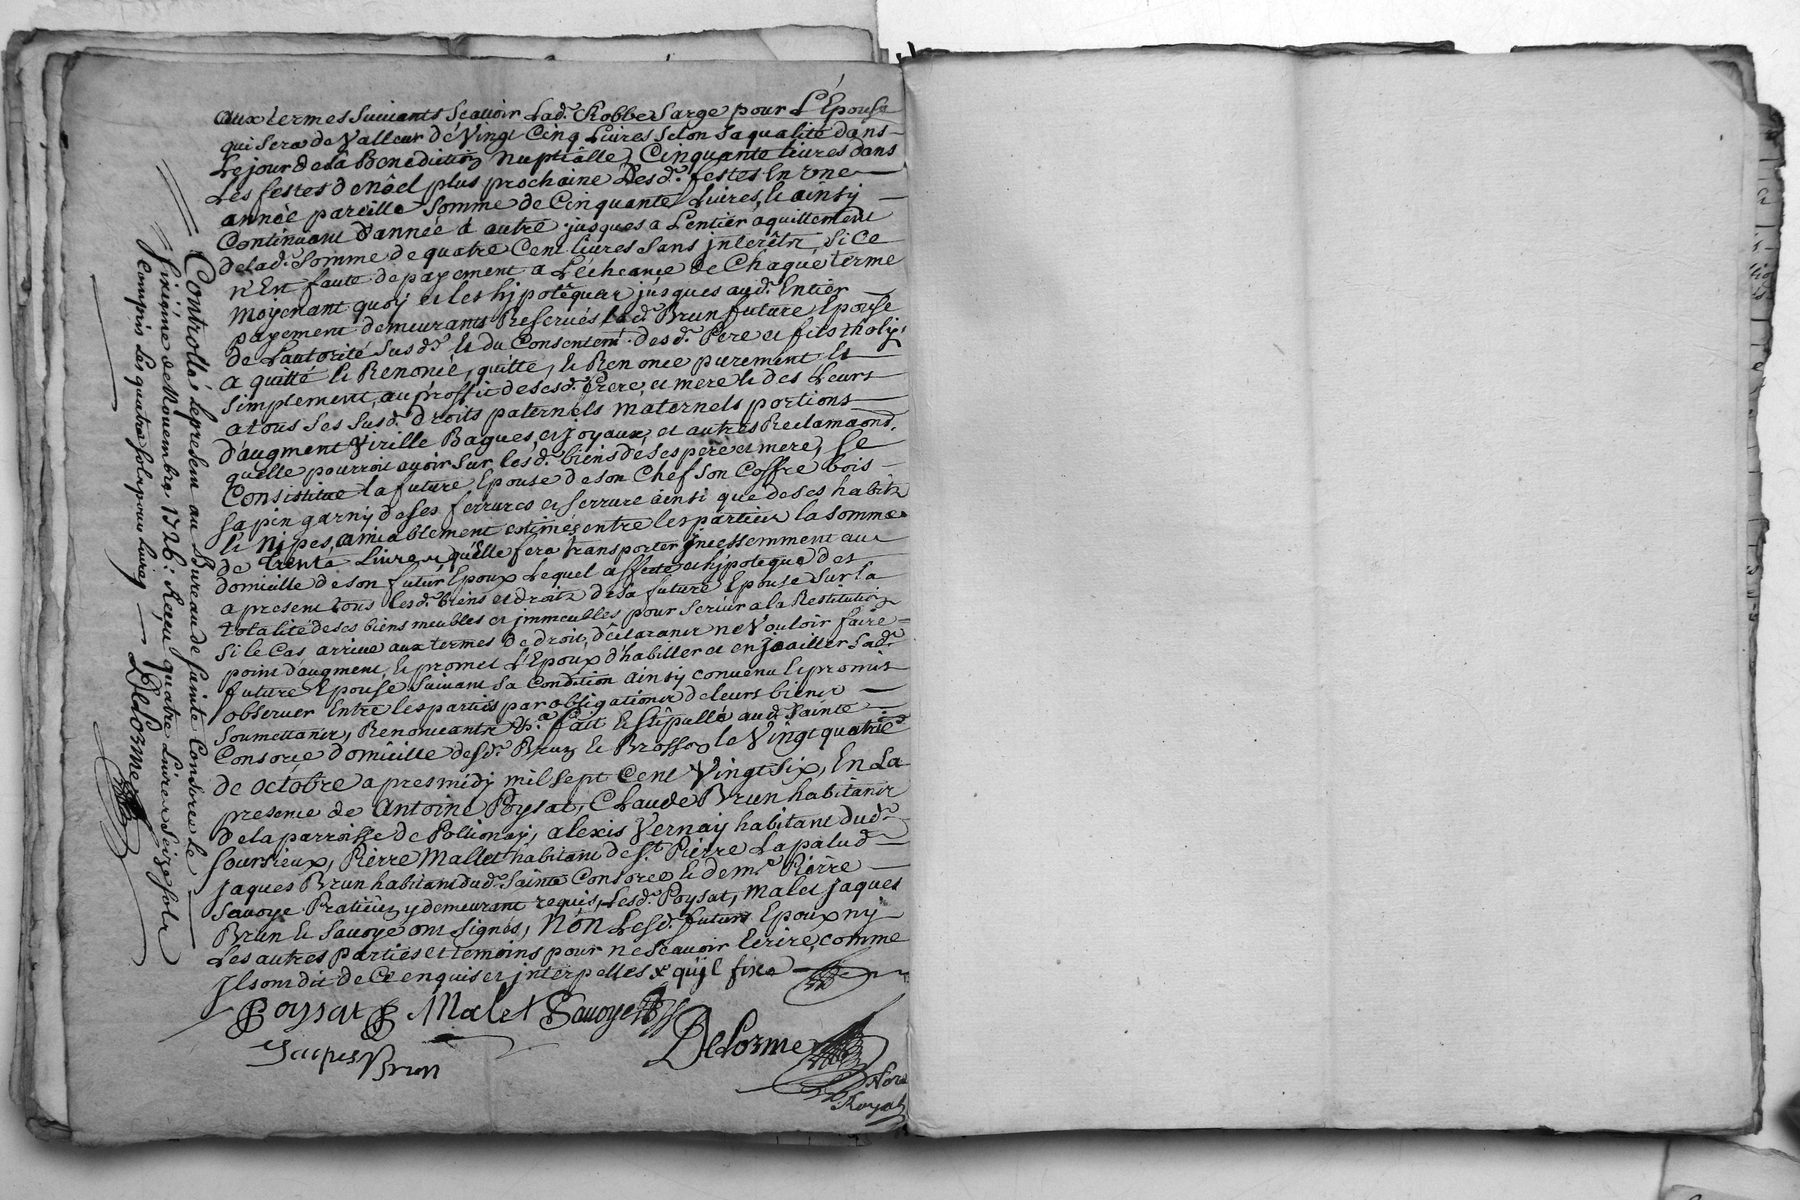 aux termes suivants scavoir Lad.e Robbe sarge pour L'Épouse
qui sera de Valleur de Vingt Cinq Livres selon sa qualité dans
Le jour de la Benediction nuptialle, Cinquante livres dans
Les festes de nôel plus prochaine Desd. festes En une
année pareille somme de Cinquante Livres, le ainsy
Continuant d'année a autre jusques a Lentier aquittement
de lad.e somme de quatre Cent livres sans jnterêtz, si Ce
n'Est faute de payement a Lecheance de Chaque terme
moyenant quoy et les hypotêques jusques aud. Entier
payement demeurants Reservés, lad.e Brun future Epouse
de Lautorité susd.e et du Consentem.t desd. Pere et fils tholy
a quitté le Renoncé, quitte, le Renonce purement et
simplement, au proffit de sesd. Pere, et mere le des Leurs
a tous ses susd. droits paternels maternels portions
d'augment Virille Bagues, et joyaux, et autres Reclamaõns,
quelle pourroit avoir sur lesd. biens de ses pere et mere, se
Consistitue la future Epouse de son Chef son Coffre bois
sapin garny de ses ferrures et serrure ainsi que de ses habitz
le nipes, amiablement estimés entre les parties la somme
de trente Livres, qu'elle fera transporter jncessemment au
domicille de son futur Epoux Lequel affecte et hipoteque des
a present tous lesd. biens et droitz de sa future Epouse sur la
totalité de ses biens meubles et jmmeubles pour servir a la Restitution
si le Cas arrive aux termes de droit, déclarants ne Vouloir faire
point d'augment, le promet L'Epoux d'habiller et enjoailler sad.e
future Epouse suivant sa Condition ainsy convenu le promis
observer Entre les parties par obligations de leurs biens
soumettants, Renonceants &.a fait le stipullé aud. Sainte
Consorce domicille desd. Brun le Brossox le Vingt quatrie.
de octobre apres midy mil sept Cent Vingt six, En La
presence de Antoine Poysat, Claude Brun habitants
de la parroisse de Pollionay, alexis Vernay habitant dud.
soursieux, Pierre Mallet habitant de S.t Pierre La palud
jaques Brun habitant dud. Sainte Consorce le de m.e Pierre
Savoye Praticien y demeurant requis, Lesd. Poysat, malet jaques
Brun le Savoye ont signés, non Lesd. futurs Epoux ny
Les autres parties et temoins pour ne scavoir Ecrire, comme
Ils ont dit de Ce enquis et jnterpellés
Poysat Malet Savoye
Jacques Brun
DeLorme
Nore
Royal
Controllé le present au Bureau de Sainte Consorce le
sixiéme de Novembre 1726: Reçu quatre Livres seize sols
compris les quatre sols pour livres
DeLorme